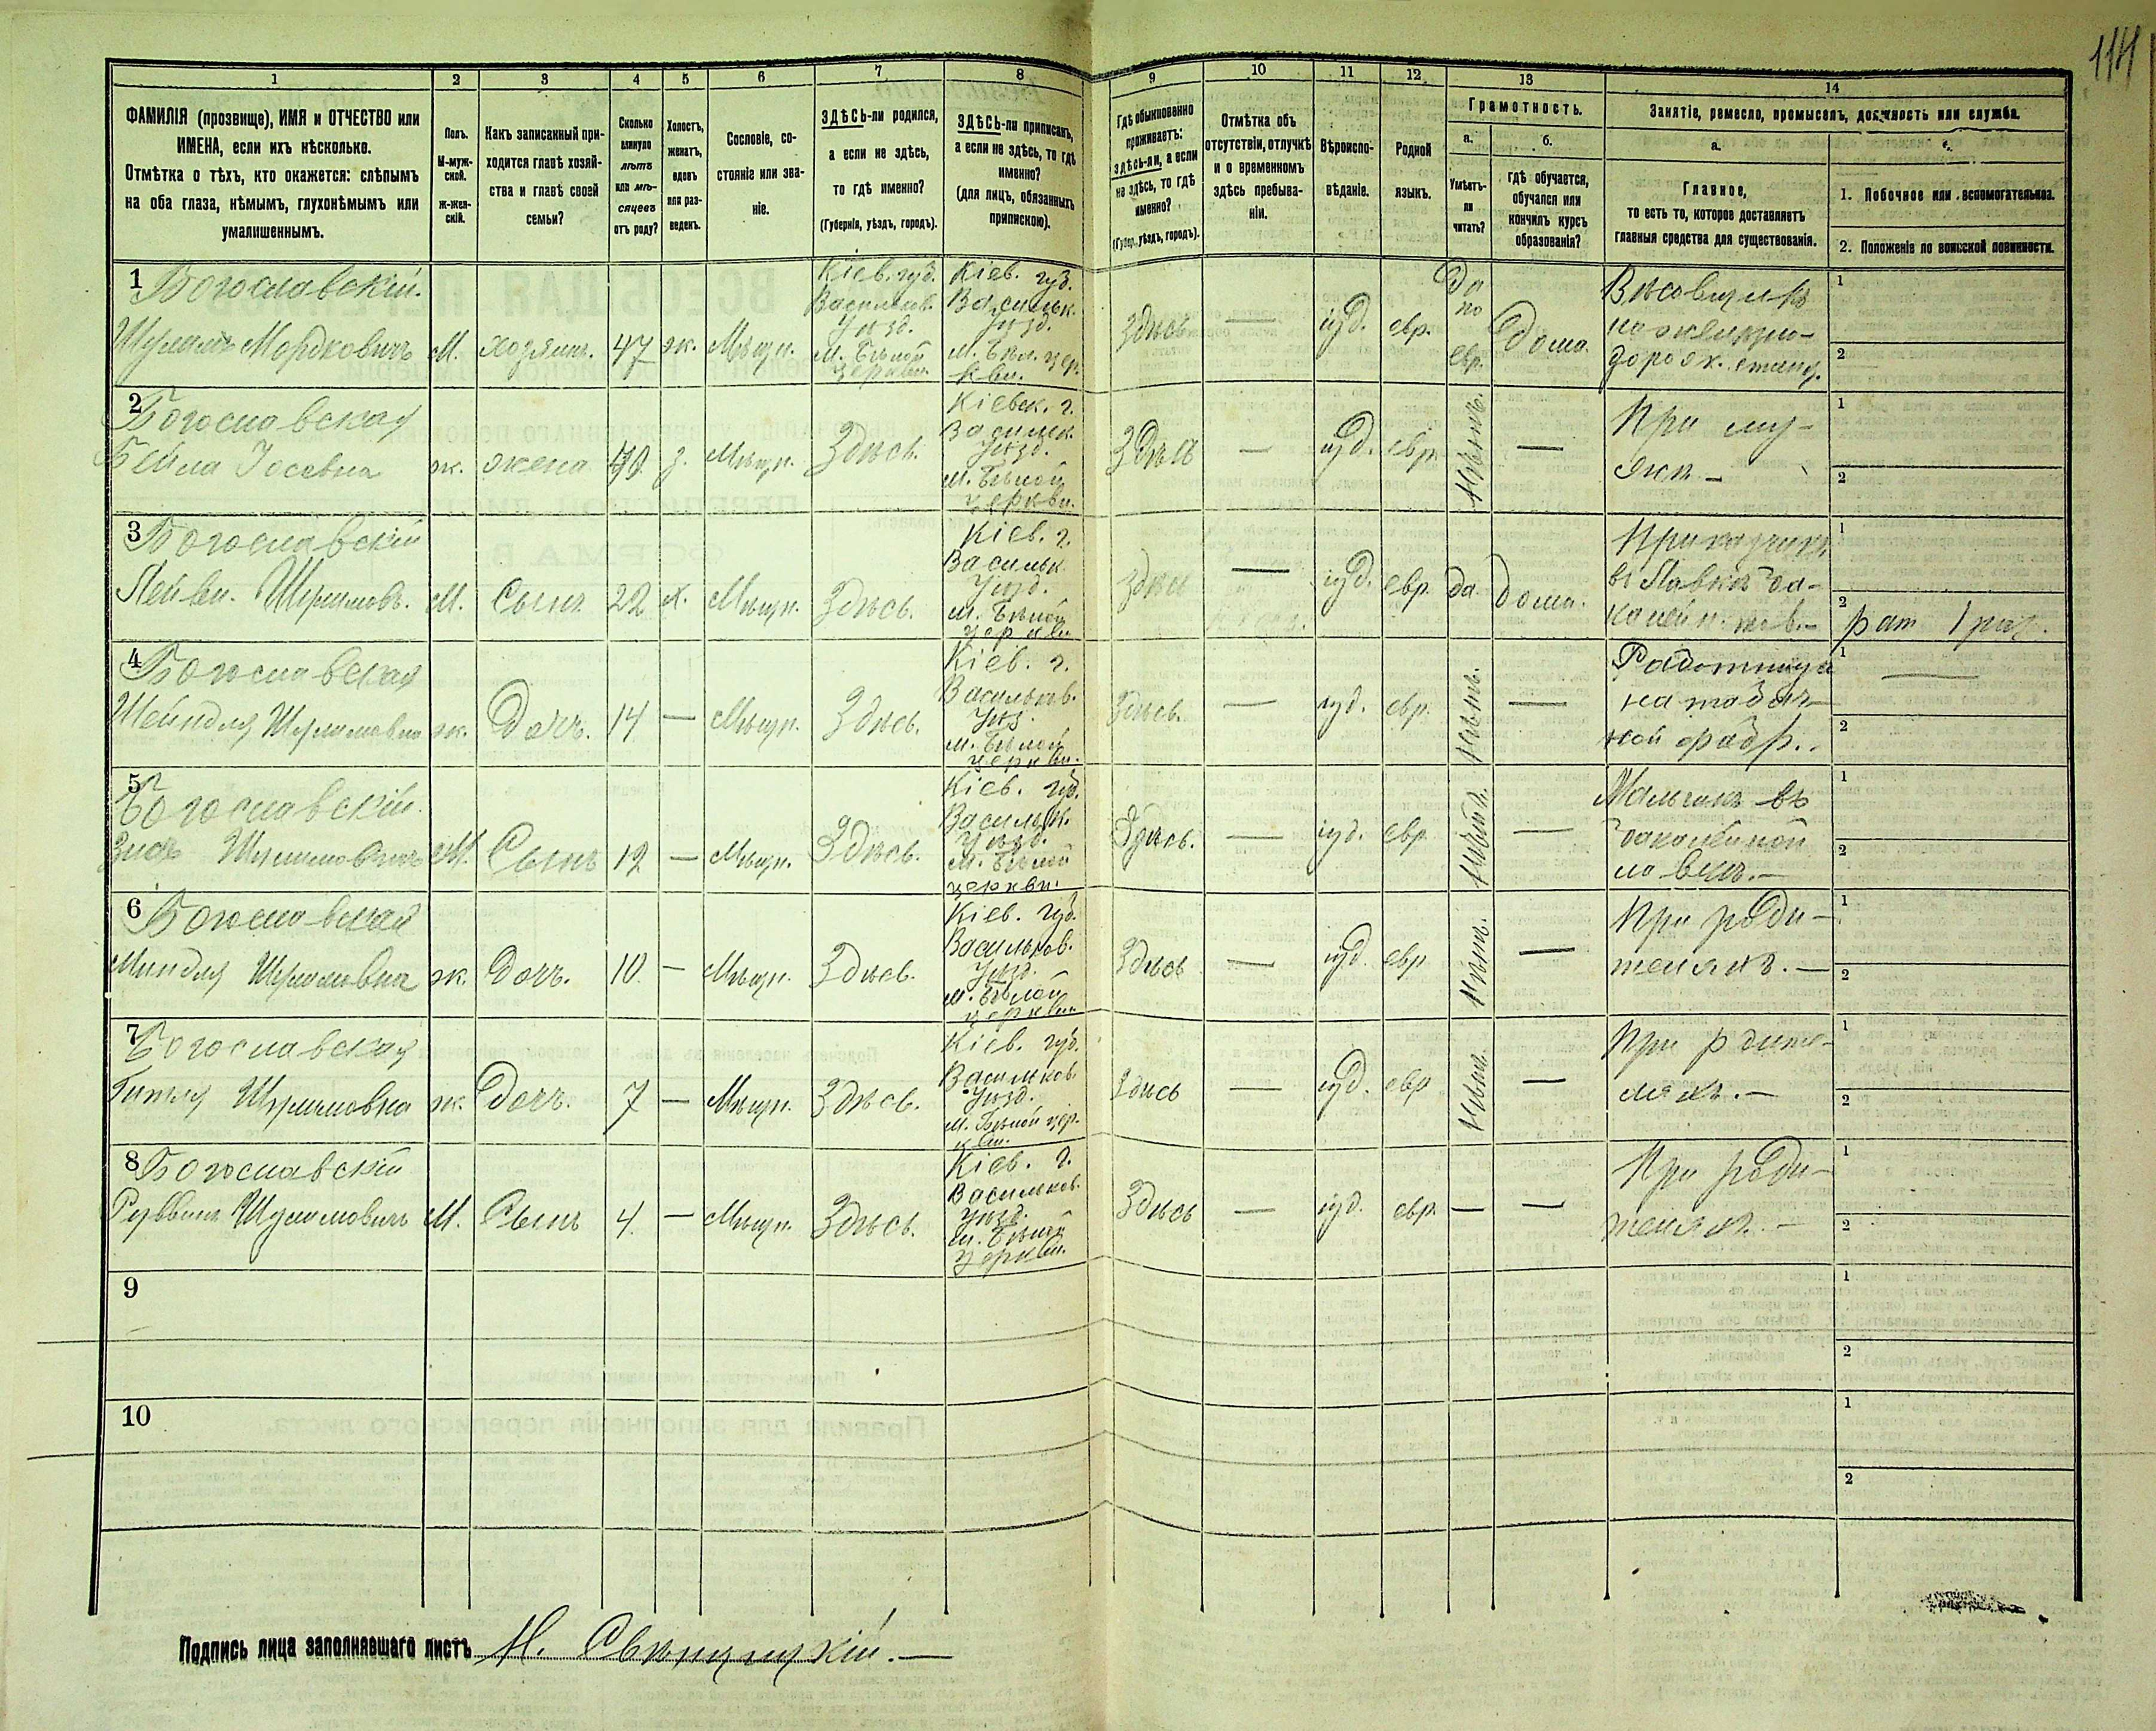 114
1 2 3 4 5 6 7 8 9 10 11 12 13 14
ФАМИЛІЯ (прозвище), ИМЯ и ОТЧЕСТВО или
ИМЕНА, если ихъ нѣсколько.
Отмѣтка о тѣхъ, кто окажется: слѣпымъ
на оба глаза, нѣмымъ, глухонѣмымъ или
умалишеннымъ.
Полъ.
М-муж-
ской.
Ж-жен-
скій.
Какъ записанный при-
ходится главѣ хозяй-
ства и главѣ своей
семьи?
Сколько
минуло
лѣтъ
или мѣ-
сяцевъ
отъ роду?
Холостъ,
женатъ,
вдовъ
или раз-
веденъ.
Сословіе, со-
стояніе или зва-
ніе.
ЗДѢСЬ-ли родился,
а если не здѣсь,
то гдѣ именно?
(Губернія, уѣздъ, городъ).
ЗДѢСЬ-ли приписанъ,
а если не здѣсь, то гдѣ
именно?
(для лицъ, обязанныхъ
припискою).
Гдѣ обыкновенно
проживаетъ:
здѣсь-ли, а если
не здѣсь, то гдѣ
именно?
(Губер., уѣздъ, городъ).
Отмѣтка объ
отсутствіи, отлучкѣ
и о временномъ
здѣсь пребыва-
ніи.
Вѣроиспо-
вѣданіе.
Родной
языкъ.
Грамотность.
а.
Умѣетъ-
ли
читать?
б.
гдѣ обучается,
обучался или
кончилъ курсъ
образованія?
Занятіе, ремесло, промыселъ, должность или служба.
а.
Главное,
то есть то, которое доставляетъ
главныя средства для существованія.
б.
1. Побочное или вспомогательное.
2. Положеніе по воинской повинности.
1 Богославскій.
Шулимъ Мордковичъ
М.
хозяинъ.
47
ж.
Мѣщн.
Кіев. губ.
Васильков.
Уѣзд.
м. Бѣлой
церкви.
Кіев. губ.
Васильк.
Уѣзд.
м. Бѣл. цер.
кви.
Здѣсь
—
іуд.
евр.
да
по
евр.
дома.
Вѣсовщикъ
на желѣзно-
дорож. станц.
1
2
2 Богославская
Бейла Іосевна
ж.
жена
з.
Мѣщн.
Здѣсь.
Кіевск. г.
Васильк.
Уѣзд.
м. Бѣлой
церкви.
Здѣсь
—
іуд.
евр.
Нѣтъ.
—
При му-
жѣ —
1
2
3 Богославскій
Лейви. Шулимов.
М.
Сынъ
22
х.
Мѣщн.
Здѣсь.
Кіев. г.
Васильк.
Уѣзд.
м. Бѣлой
церкви.
Здѣсь
—
іуд.
евр.
да.
дома.
Приказчикъ
въ Лавкѣ ба-
калейн. тов.—
1
2
рат 1 раз.
4 Богославская
Шейндля Шулимовна
ж.
Дочь.
14
—
Мѣщн.
Здѣсь.
Кіев. г.
Васильков.
Уѣз.
м. Бѣлой
церкви.
Здѣсь.
—
іуд.
евр.
Нѣтъ.
—
Работница
на табач-
ной фабр..
1 —
2
5 Богославскій.
Шулимовичъ
М.
Сынъ
12
—
Мѣщн.
Здѣсь.
Кіев. губ.
Васильк.
Уѣзд.
м. Бѣлой
церкви.
Здѣсь.
—
іуд.
евр.
—
Мальчикъ въ
бакалейной
лавкѣ.—
1
2
6 Богославская
Миндля Шулимовна
ж.
Дочь.
10
—
Мѣщн.
Здѣсь.
Кіев. губ.
Васильков.
Уѣзд.
м. Бѣлой
церкви.
Здѣсь
—
іуд.
евр
Нѣтъ.
—
При роди-
теляхъ.—
1
2
7 Богославская
Гитля Шулимовна
ж.
Дочь.
7
—
Мѣщн.
Здѣсь.
Кіев. губ.
Васильков.
Уѣзд.
м. Бѣлой цер.
кви.
Здѣсь
—
іуд.
евр
Нѣтъ.
—
При рдите-
ляхъ.—
1
2
8 Богославскій
Руввинъ Шулимовичъ
М.
Сынъ
4.
—
Мѣщн.
Здѣсь.
Кіев. г.
Васильков.
уѣзд.
м. Бѣлой
церкви.
Здѣсь
—
іуд.
евр.
—
—
При роди-
теляхъ.—
1
2
9
1
2
10
1
2
Подпись лица заполнявшаго листъ